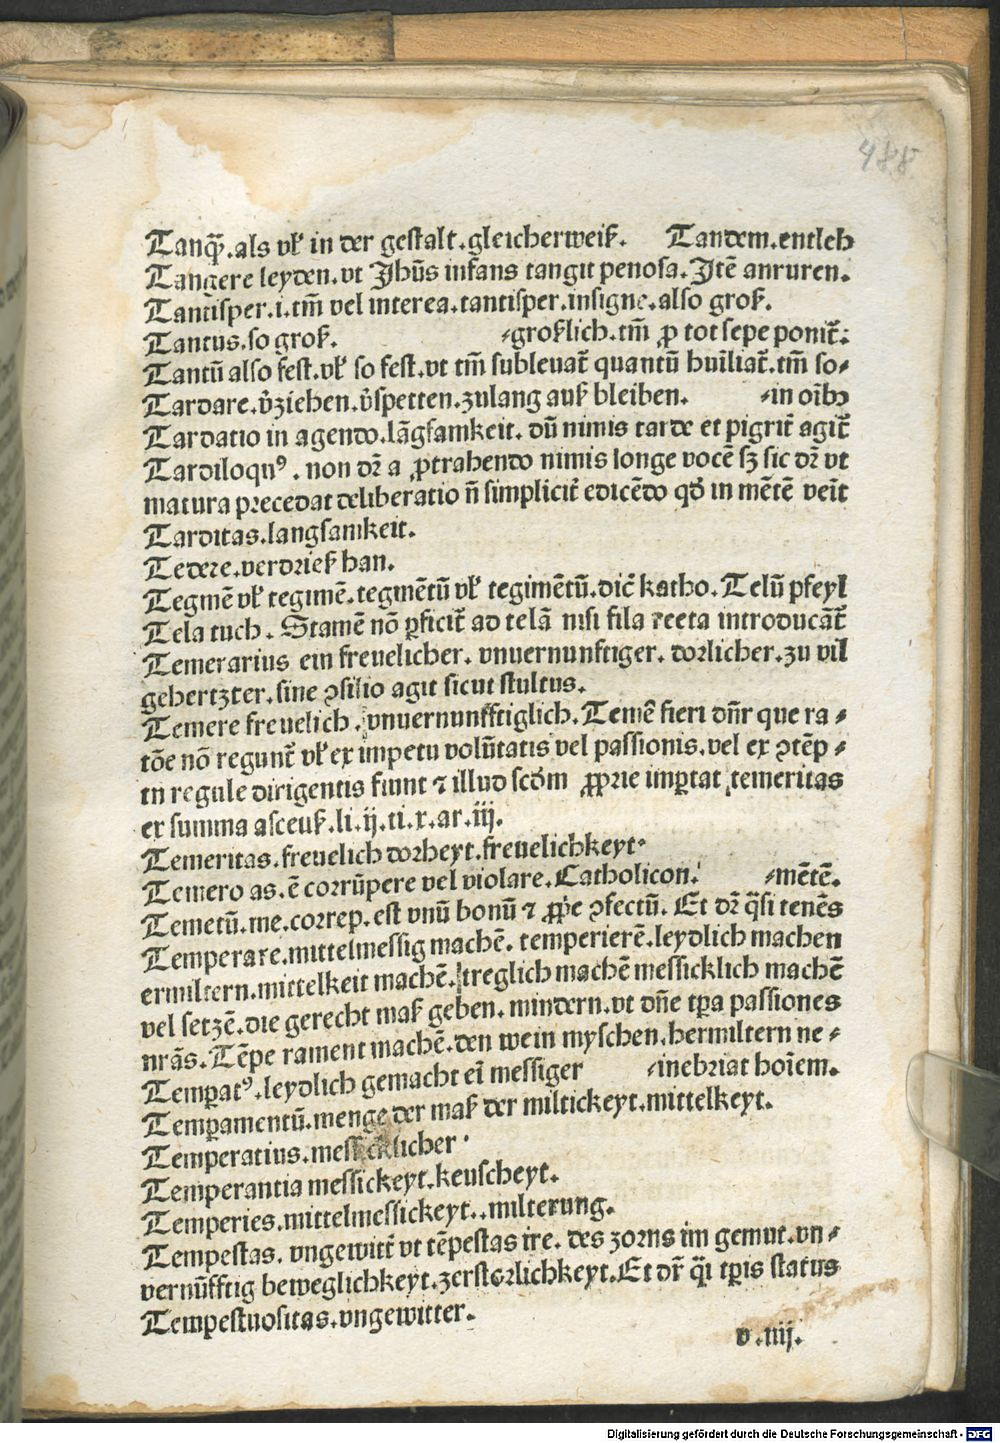 488
Tanq̃. als vl' in der gestalt. gleicherweiß. Tandem. entlich
Tangere leyden. vt Jhũs infans tangit penosa. Jtẽ anruren.
Tantisper. i. tm̃ vel interea. tantisper. insigne. also groß.
Tantus. so groß. -groklich. tm̃ ꝓ tot sepe ponit̃.
Tantũ also fest. vl' so fest. vt tm̃ subleuat̃ quantũ huĩliat̃. tm̃ so-
Tardare. v̉ziehen. v̉spetten. zulang auß bleiben. -in oĩbꝫ
Tardatio in agendo. lãgsamkeit. dũ nimis tarde et pigrit̃ agit̃
Tardiloquꝰ. non dr̃ a ꝓtrahendo nimis longe vocẽ sꝫ sic dr̃ vt
matura precedat deliberatio ñ simplicit̃ edicẽdo qd̕ in mẽtẽ veĩt
Tarditas. langsamkeit.
Tedere. verdrieß han.
Tegmẽ vl' tegimẽ. tegmẽtũ vl' tegimẽtũ. dic̃ katho. Telũ pfeyl
Tela tuch. Stamẽ nõ ꝑficit̃ ad telã nisi fila recta introducãt̃
Temerarius ein freuelicher. vnuernunftiger. dorlicher. zu vil
gehertzter. sine ꝯsilio agit sicut stultus.
Temere freuelich. vnuernunfftiglich. Temẽ fieri dñr que ra-
tõe nõ regunt̃ vl' ex impetu volũtatis vel passionis. vel ex ꝯtẽp-
tu regule dirigentis fiunt ⁊ illud scd̕m ꝓprie imꝑtat temeritas
ex summa asceuß. li. ij. ti. x. ar. iij.
Temeritas. freuelich dorheyt. freuelichkeyt.
Temero as. ẽ corrũpere vel violare. Catholicon. -mẽtẽ.
Temetũ. me. correp. est vnũ bonũ ⁊ ꝓpe ꝯfectũ. Et dr̃ q̃si tenẽs
Temperare. mittelmessig machẽ. temperierẽ. leydlich machen
ermiltern. mittelkeit machẽ. treglich machẽ messicklich machẽ
vel setzẽ. die gerecht maß geben. mindern. vt dñe tꝑa passiones
nrãs. Tẽpe rament machẽ. den wein myschen. hermiltern ne-
Temꝑatꝰ. leydlich gemacht eĩ messiger -inebriat hoĩem.
Temꝑamentũ. menge der maß der miltickeyt. mittelkeyt.
Temperatius. messicklicher.
Temperantia messickeyt. keuscheyt.
Temperies. mittelmessickeyt.. milterung.
Tempestas. vngewitt̃ vt tẽpestas ire. des zorns im gemut. vn-
vernũfftig beweglichkeyt. zerstorlichkeyt. Et dr̃ q̃i tꝑis status
Tempestuositas. vngewitter.
v. iiij.
Digitalisierung gefördert durch die Deutsche Forschungsgemeinschaft - DFG